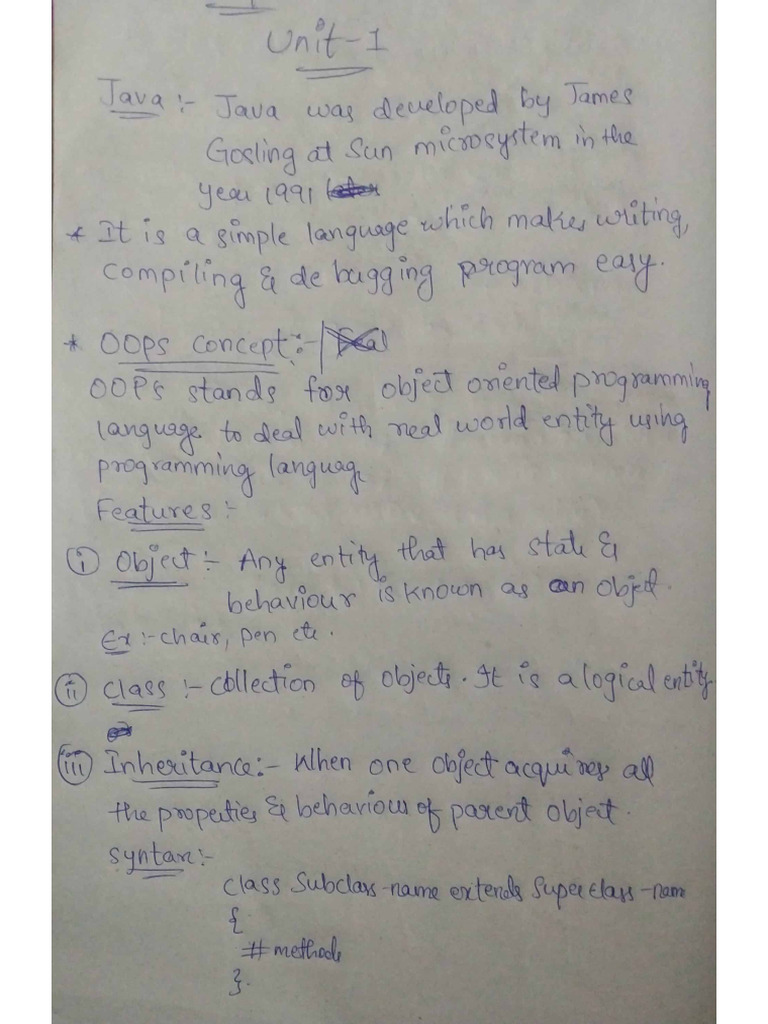 Unit-1
Java :- Java was developed by James
Gosling at Sun microsystem in the
year 1991
* It is a simple language which makes writing,
compiling & de bugging program easy.
* OOPs concept :-
OOPs stands for object oriented programming
language to deal with real world entity using
programming language
Features :-
(i) Object :- Any entity that has state &
behaviour is known as an object.
Ex :- chair, pen etc.
(ii) class :- Collection of objects. It is a logical entity
(iii) Inheritance :- When one object acquires all
the properties & behaviours of parent object.
syntax :-
class Subclass-name extends Superclass-name
{
# methods
}.